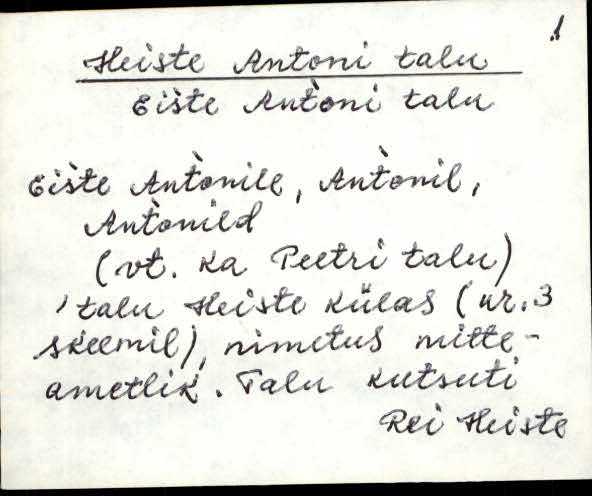 1
Heiste Antoni talu
Eiste Antòni talu
Eìste Antònile, Antònil,
Antònild
(vt. ka Peetri talu)
'talu Heiste külas (nr. 3
skeemil), nimetus mitte-
ametlik. Talu kutsuti
Rei Heiste